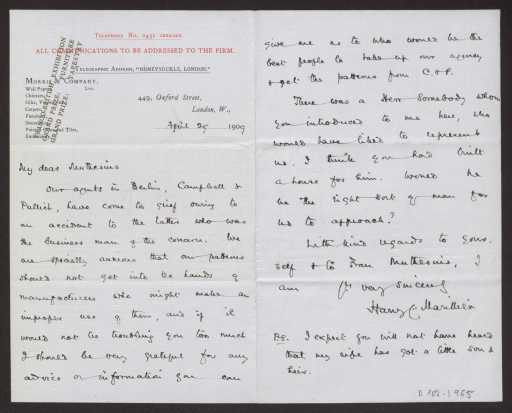 TELEPHONE No. 2431 GERRARD.
ALL COMMUNICATIONS TO BE ADDRESSED TO THE FIRM.
TELEGRAPHIC ADDRESS, "HONEYSUCKLE, LONDON."
EXHIBITION
GRAND PRIZE, FURNITURE
GRAND PRIZE, TAPESTRY
MORRIS & COMPANY,
449, Oxford Street,
London, W.,
April 25 1909
My dear Muthesius
Our agents in Berlin, Campbell &
Pullich, have come to grief owing to
an accident to the latter who was
the business man of the concern. We
are specially anxious that our patterns
should not get into the hands of
manufacturers who might make an
improper use of them, and if it
would not be troubling you too much
I should be very grateful for any
advice or information you can
give me as to who would be the
best people to take up our agency
& get the patterns from C. & P.
There was a Herr Somebody whom
you introduced to me here, who
would have liked to represent
us. I think you had built
a house for him. Would he
be the right sort of man for
us to approach?
With kind regards to your-
self & to Frau Muthesius, I
am yrs very sincerely
Harry C Marillier
PS. I expect you will not have heard
that my wife has got a little son &
heir.
D 102-1965